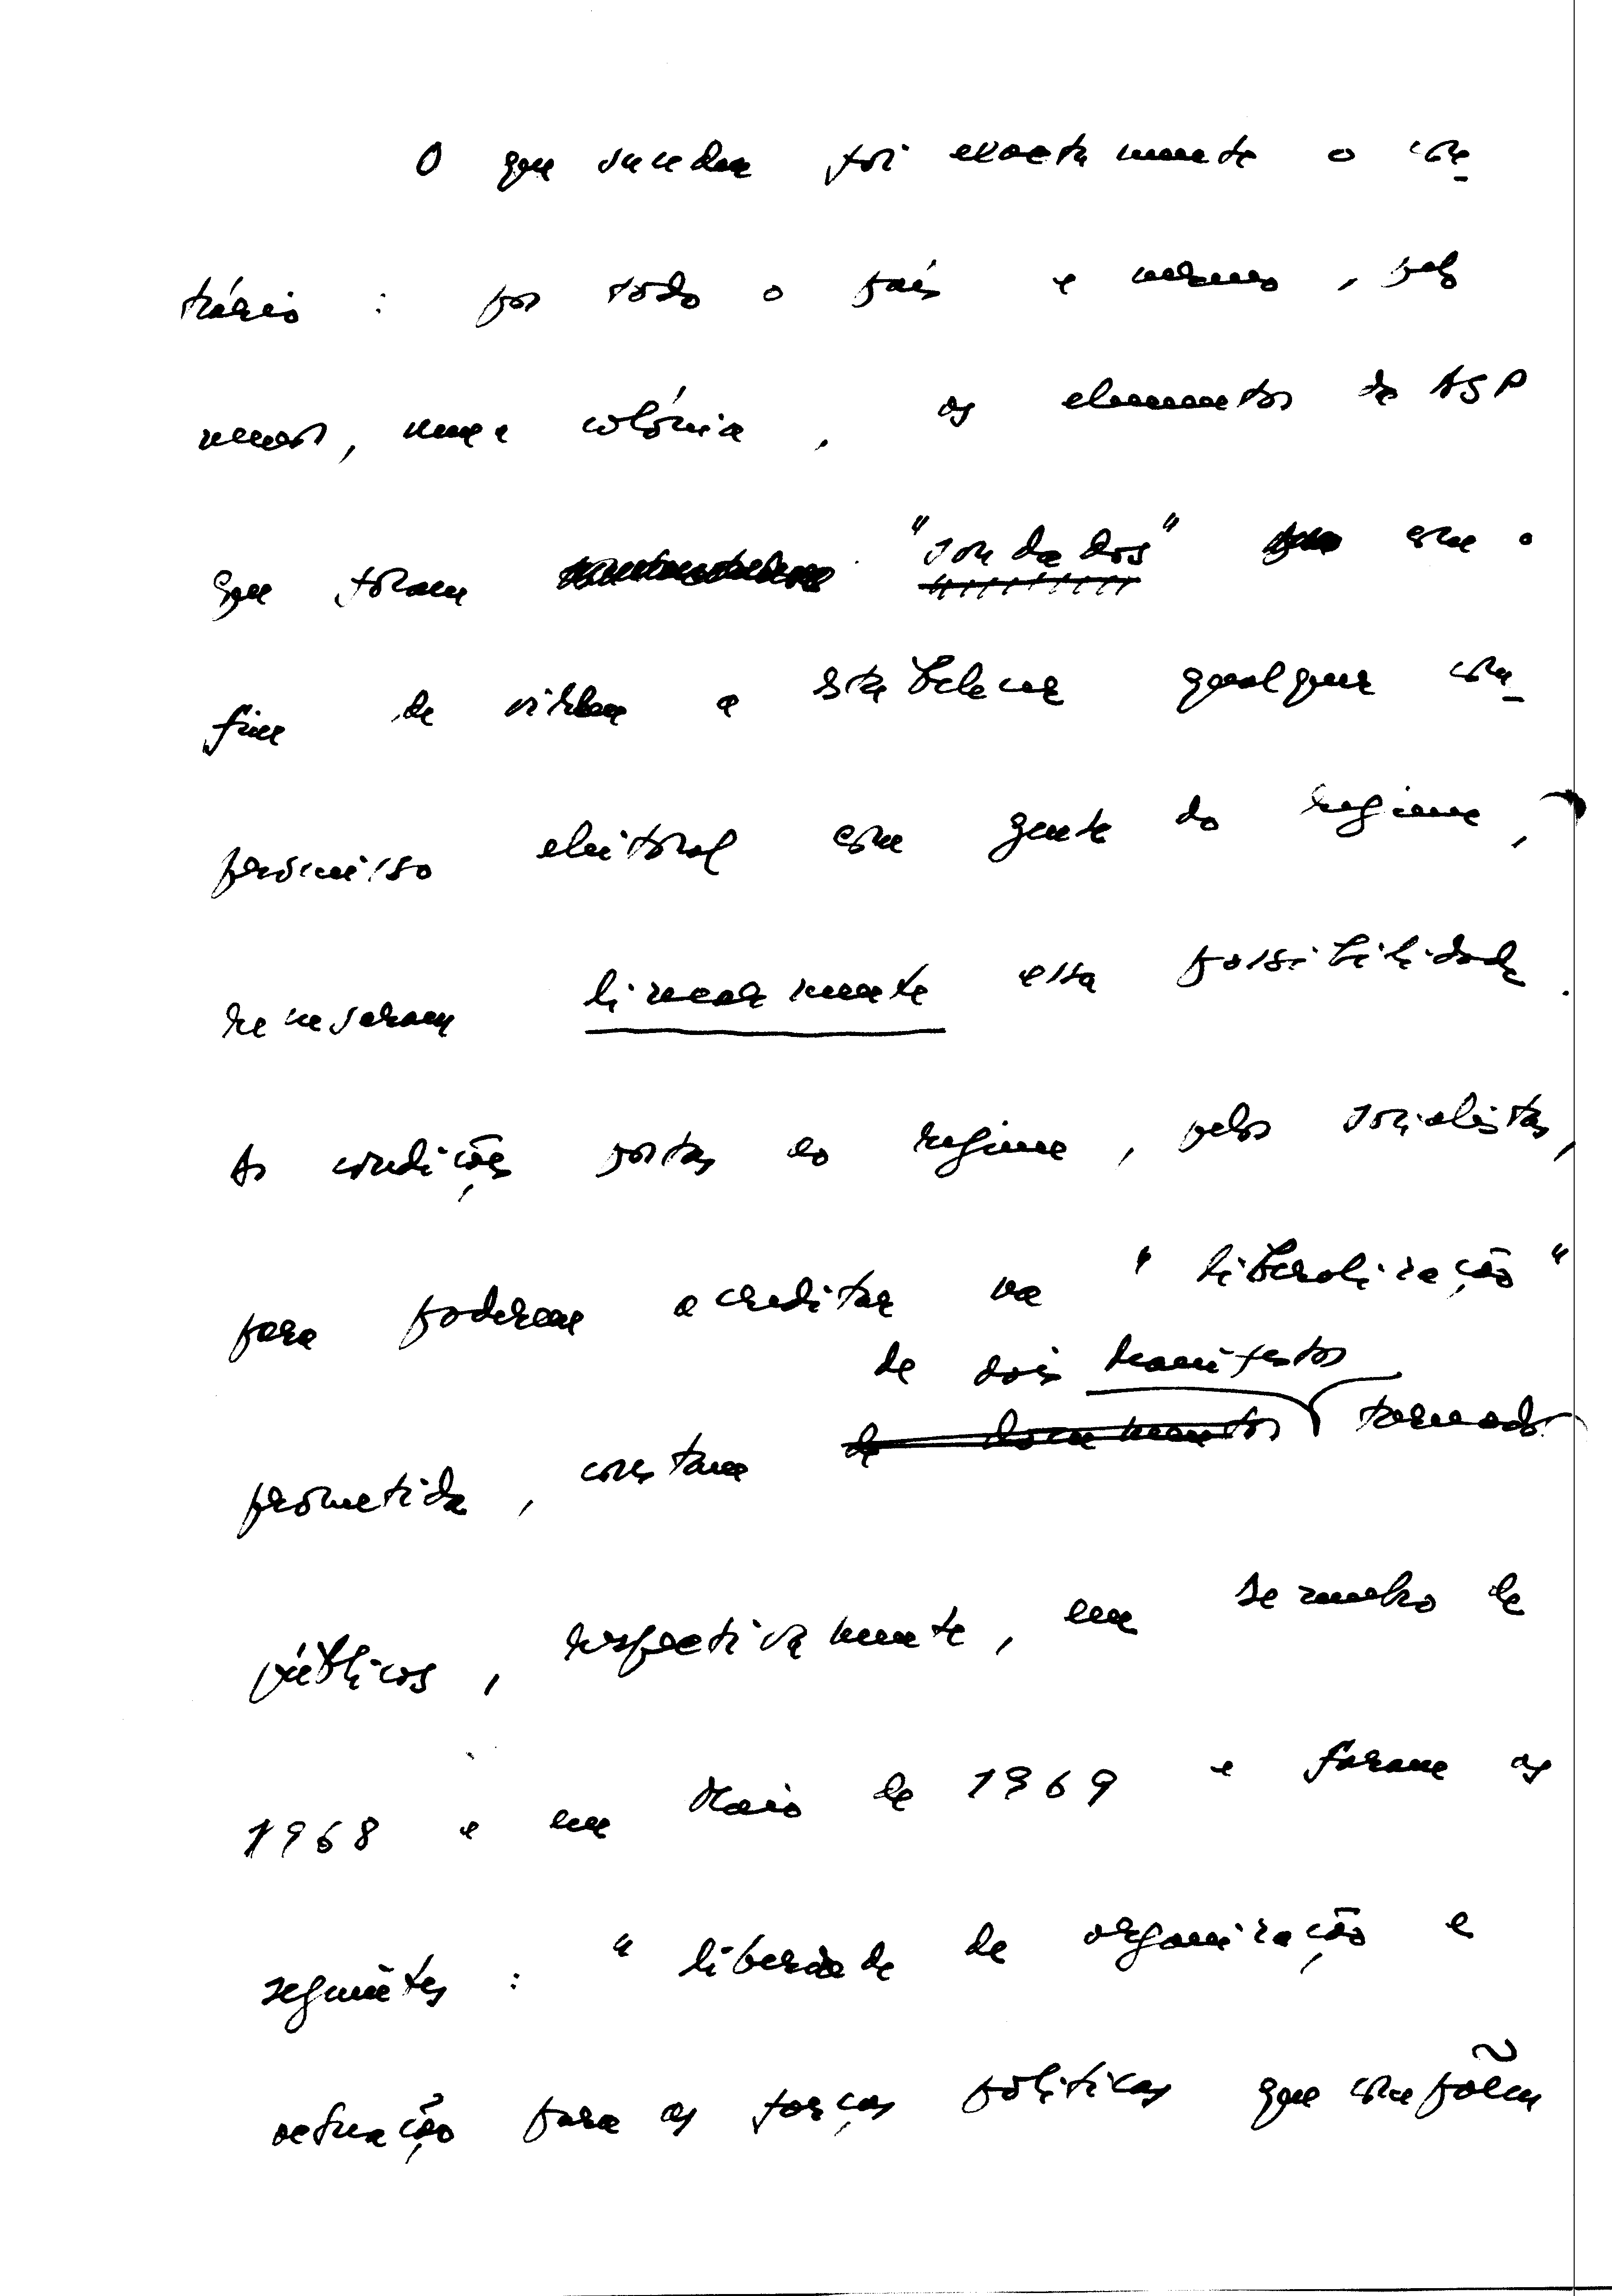 O que sucedeu foi exactamente o con-
trário : por todo o país e mesmo, pelo
menos, numa colónia, os elementos da ASP
que foram "sondados" com o
fim de virem a estabelecer qualquer com-
promisso eleitoral com gente do regime,
recusaram linearmente essa possibilidade.
As condições postas ao regime, pelos socialistas,
para poderem acreditar na "liberalização"
de dois manifestos
prometida, constam de documentos tornados
públicos, respectivamente, em Dezembro de
1968 e em Maio de 1969 e foram as
seguintes : "liberdade de organização e
actuação para as forças políticas que compõem